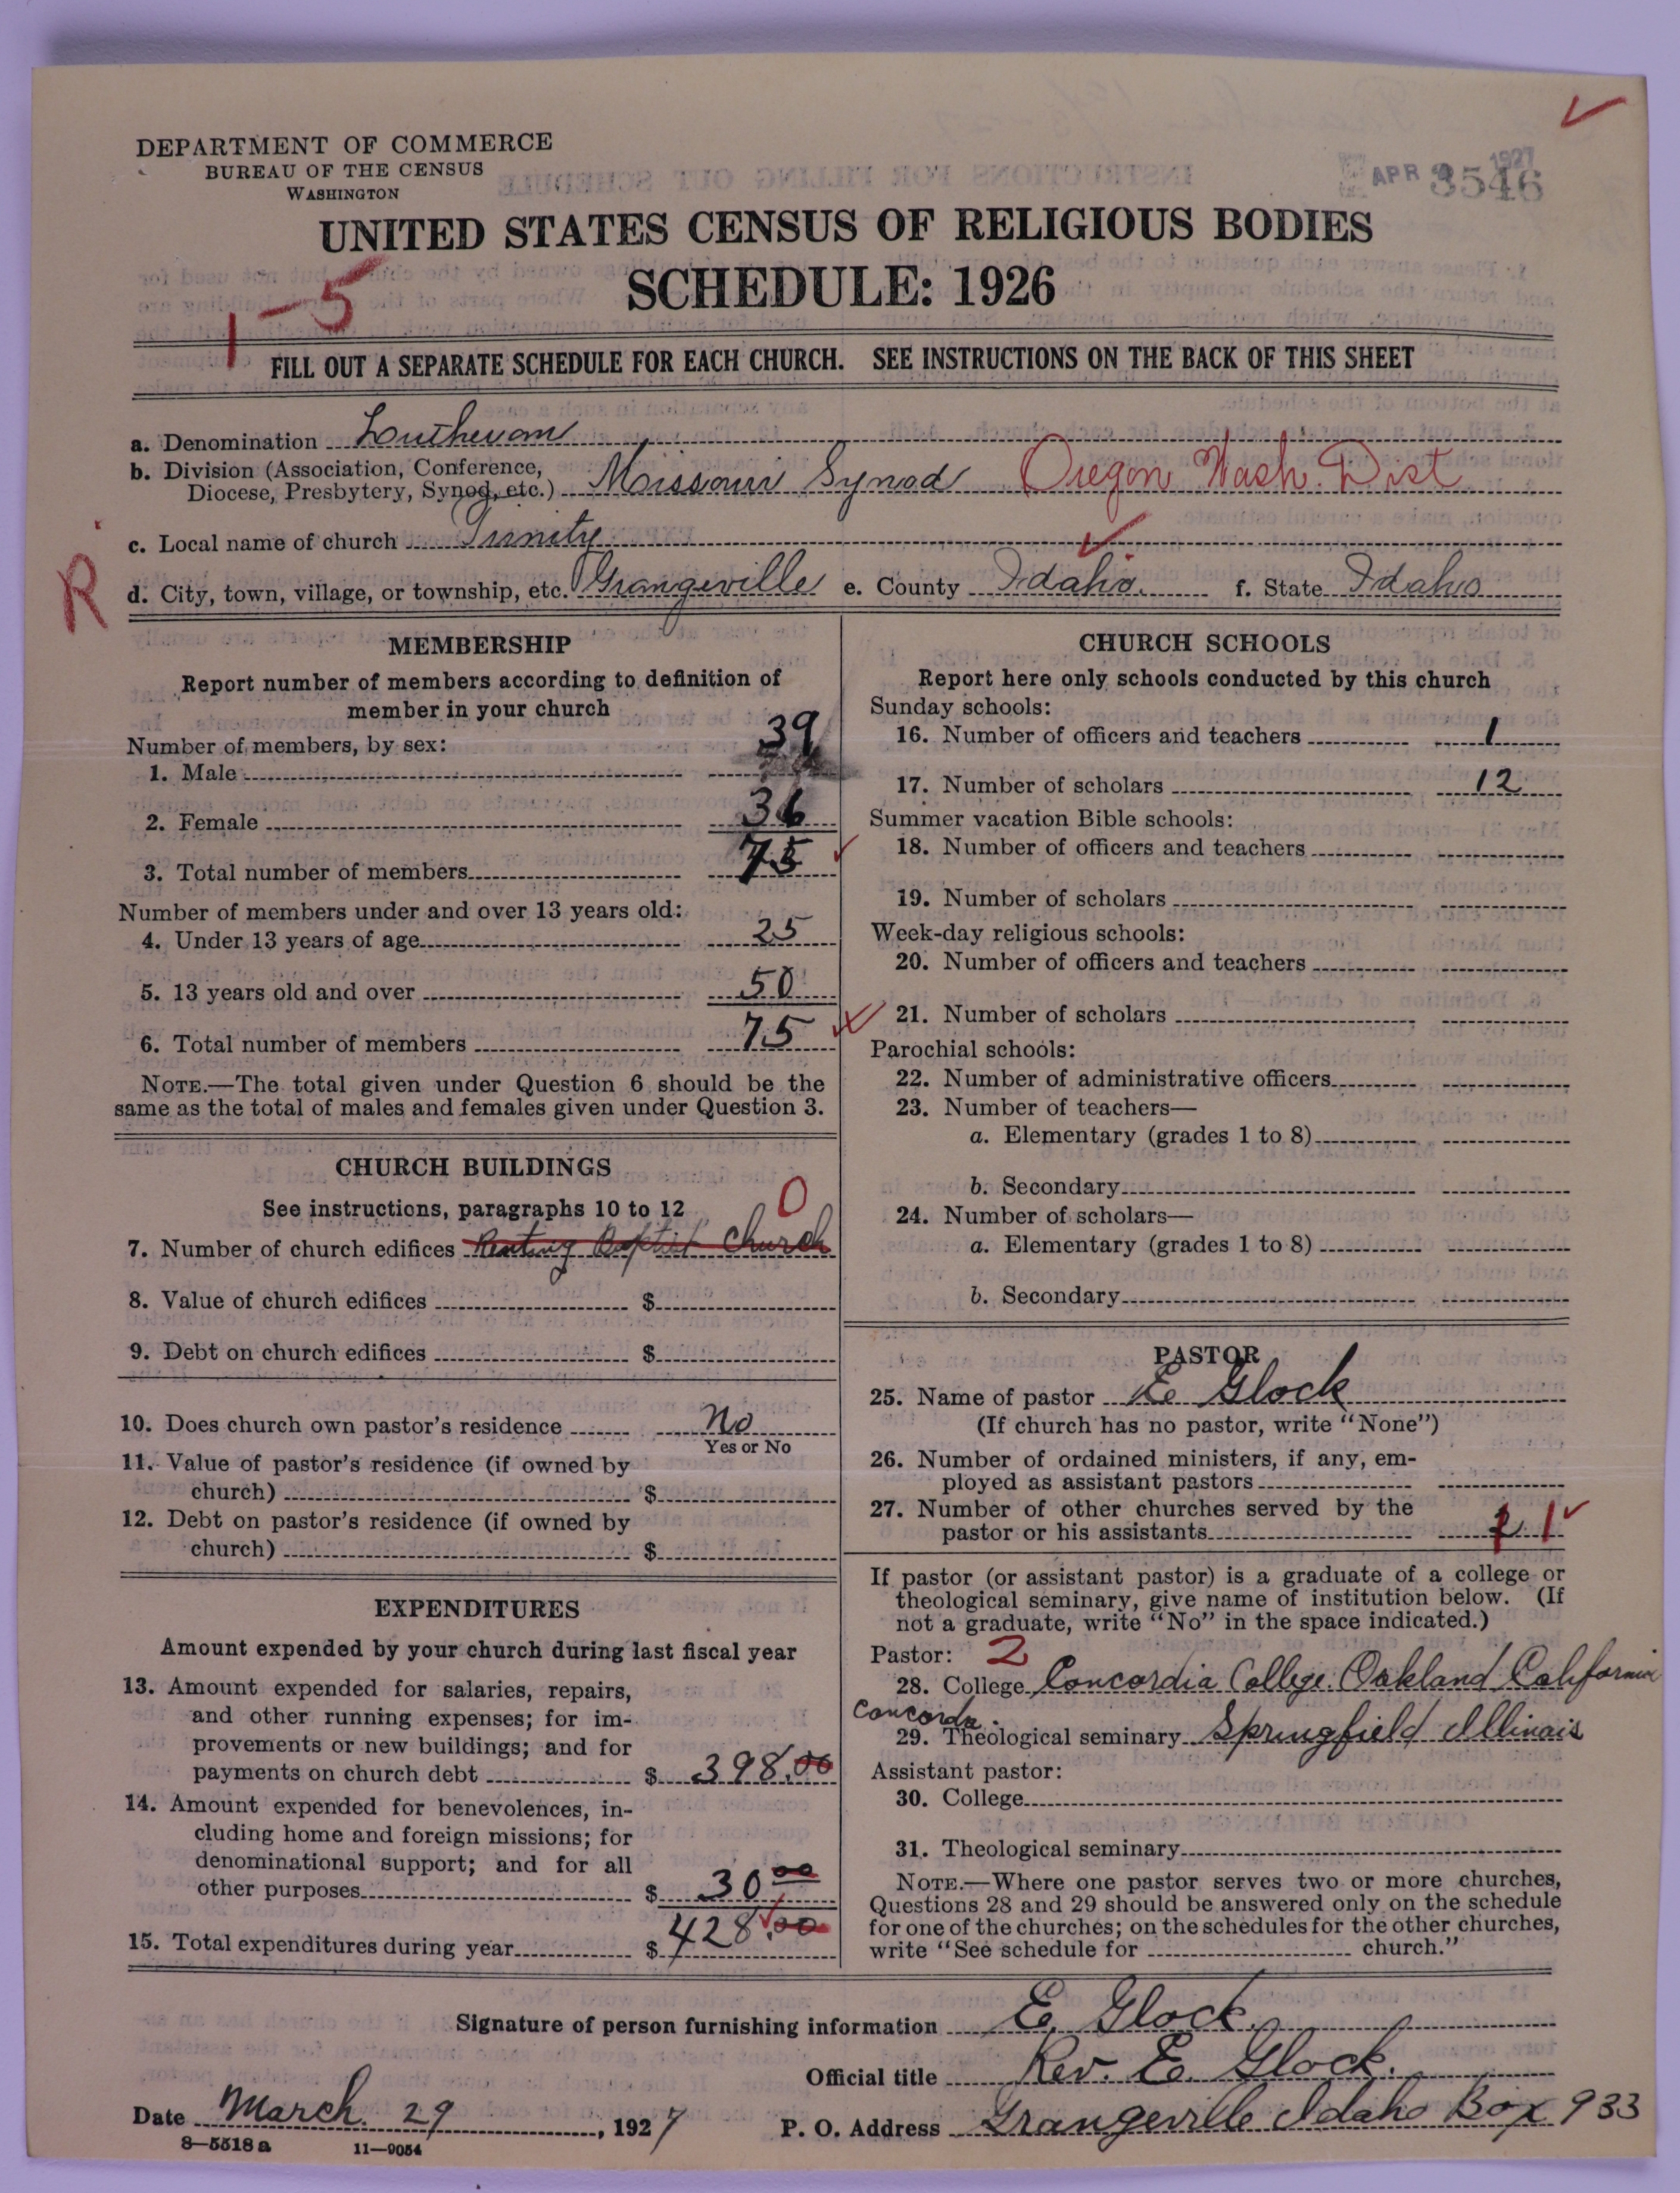 DEPARTMENT OF COMMERCE
BUREAU OF THE CENSUS
WASHINGTON
APR 1927
3546
UNITED STATES CENSUS OF RELIGIOUS BODIES
SCHEDULE: 1926
1-5
FILL OUT A SEPARATE SCHEDULE FOR EACH CHURCH. SEE INSTRUCTIONS ON THE BACK OF THIS SHEET
a. Denomination Lutheran
b. Division (Association, Conference,
Diocese, Presbytery, Synod, etc.) Missouri Synod Oregon Wash. Dist
c. Local name of church Trinity
R
d. City, town, village, or township, etc. Grangeville e. County Idaho. f. State Idaho
MEMBERSHIP
Report number of members according to definition of
member in your church
Number of members, by sex:
1. Male 39
2. Female 36
3. Total number of members 75
Number of members under and over 13 years old:
4. Under 13 years of age 25
5. 13 years old and over 50
6. Total number of members 75
NOTE.—The total given under Question 6 should be the
same as the total of males and females given under Question 3.
CHURCH BUILDINGS
See instructions, paragraphs 10 to 12 0
7. Number of church edifices Renting Baptist Church
8. Value of church edifices $
9. Debt on church edifices $
10. Does church own pastor's residence No
Yes or No
11. Value of pastor's residence (if owned by
church) $
12. Debt on pastor's residence (if owned by
church) $
EXPENDITURES
Amount expended by your church during last fiscal year
13. Amount expended for salaries, repairs,
and other running expenses; for im-
provements or new buildings; and for
payments on church debt $ 398.00
14. Amount expended for benevolences, in-
cluding home and foreign missions; for
denominational support; and for all
other purposes $ 30 00
15. Total expenditures during year $ 428.00
CHURCH SCHOOLS
Report here only schools conducted by this church
Sunday schools:
16. Number of officers and teachers 1
17. Number of scholars 12
Summer vacation Bible schools:
18. Number of officers and teachers
19. Number of scholars
Week-day religious schools:
20. Number of officers and teachers
21. Number of scholars
Parochial schools:
22. Number of administrative officers
23. Number of teachers—
a. Elementary (grades 1 to 8)
b. Secondary
24. Number of scholars—
a. Elementary (grades 1 to 8)
b. Secondary
PASTOR
25. Name of pastor E. Glock
(If church has no pastor, write "None")
26. Number of ordained ministers, if any, em-
ployed as assistant pastors
27. Number of other churches served by the
pastor or his assistants 1
If pastor (or assistant pastor) is a graduate of a college or
theological seminary, give name of institution below. (If
not a graduate, write "No" in the space indicated.)
Pastor: 2
28. College Concordia College. Oakland California
Concordia.
29. Theological seminary Springfield Illinois
Assistant pastor:
30. College
31. Theological seminary
NOTE.—Where one pastor serves two or more churches,
Questions 28 and 29 should be answered only on the schedule
for one of the churches; on the schedules for the other churches,
write "See schedule for church."
Signature of person furnishing information E. Glock.
Official title Rev. E. Glock.
Date March 29, 1927 P. O. Address Grangeville Idaho Box 933
8—5518 a 11—9054